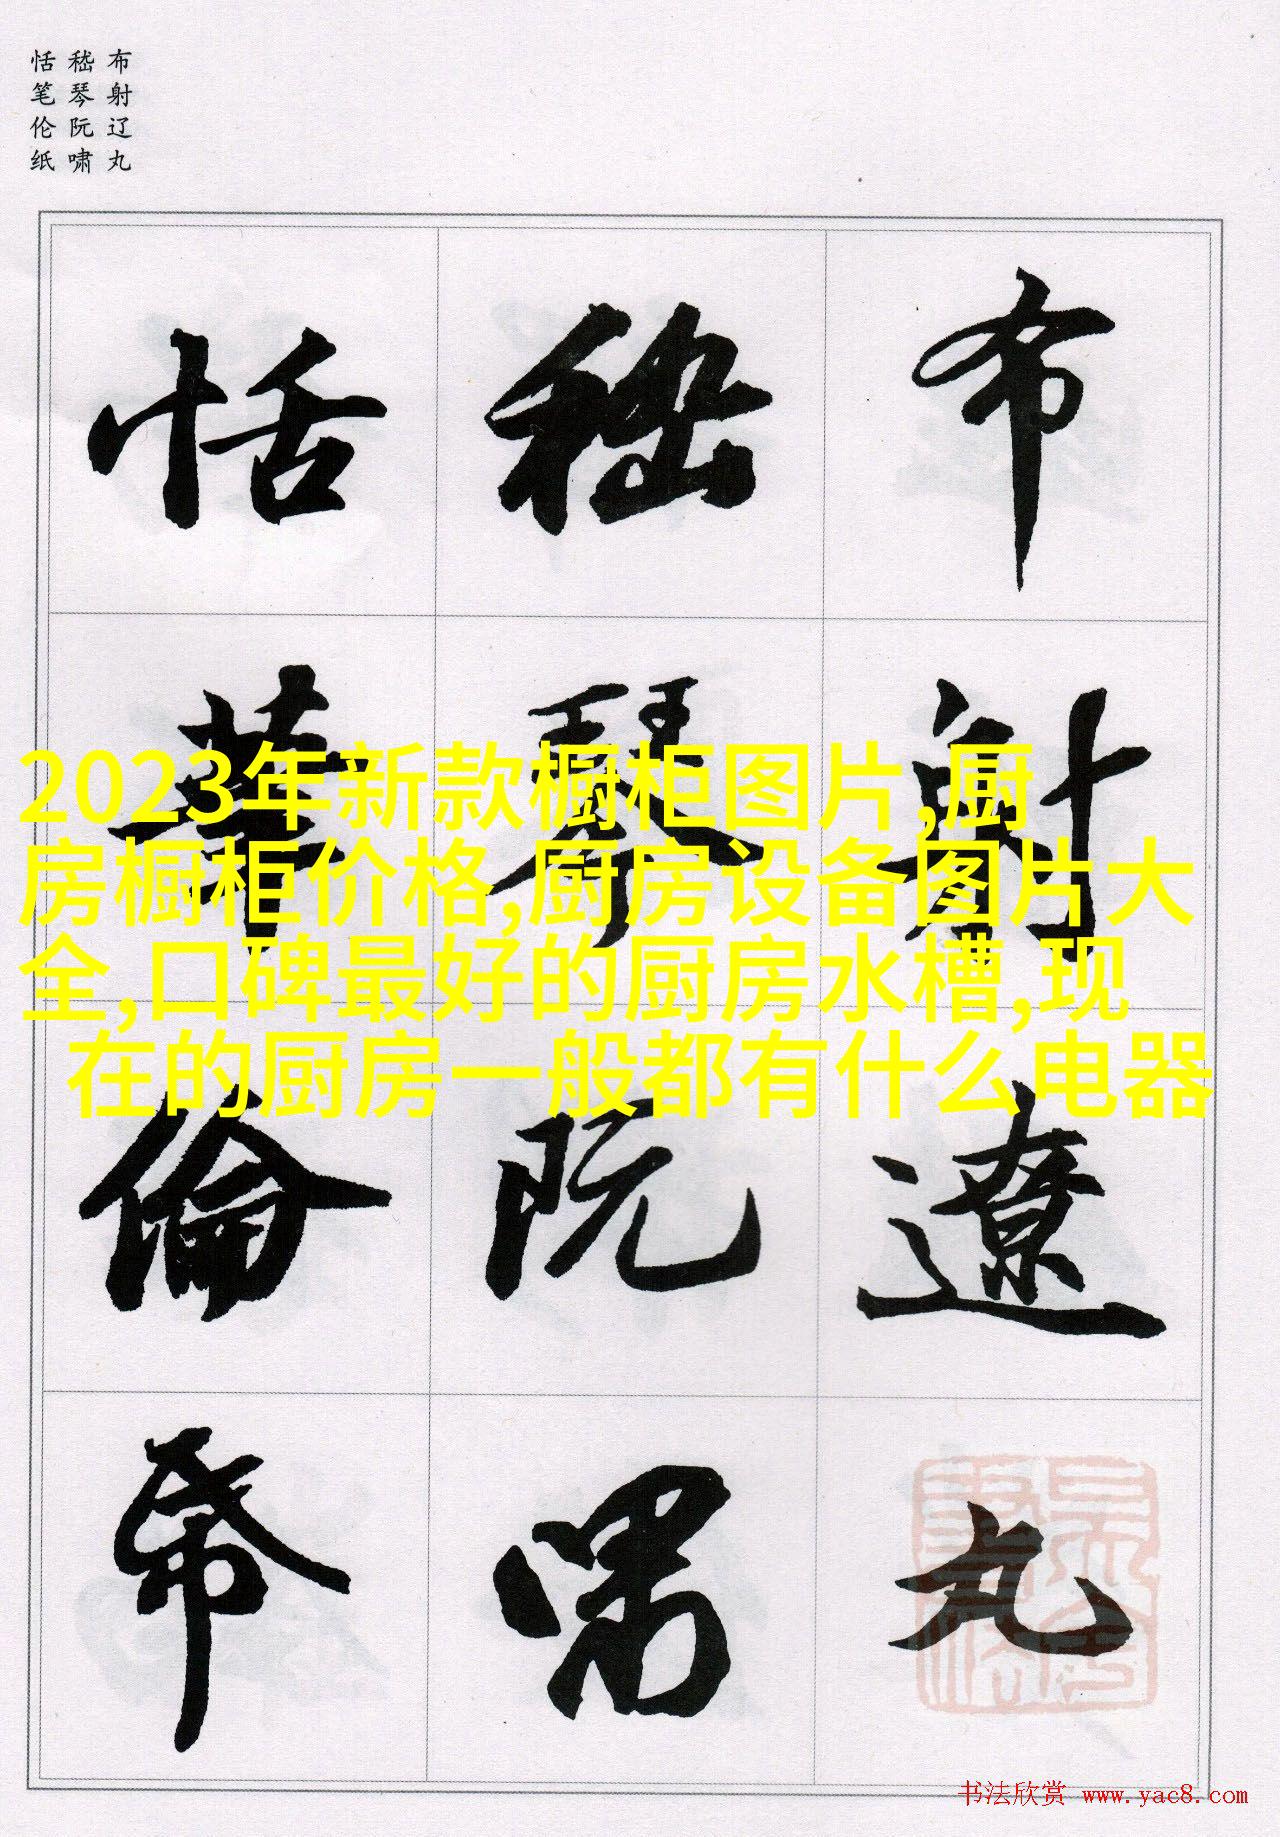 布射辽丸
嵇琴阮啸
恬笔伦纸
布射遼丸
嵇琴阮嘯
恬筆倫帋
2023年新款橱柜图片,厨
房橱柜价格,厨房设备图片大
全,口碑最好的厨房水槽,现
在的厨房一般都有什么电器
书法欣赏 www.yac8.com